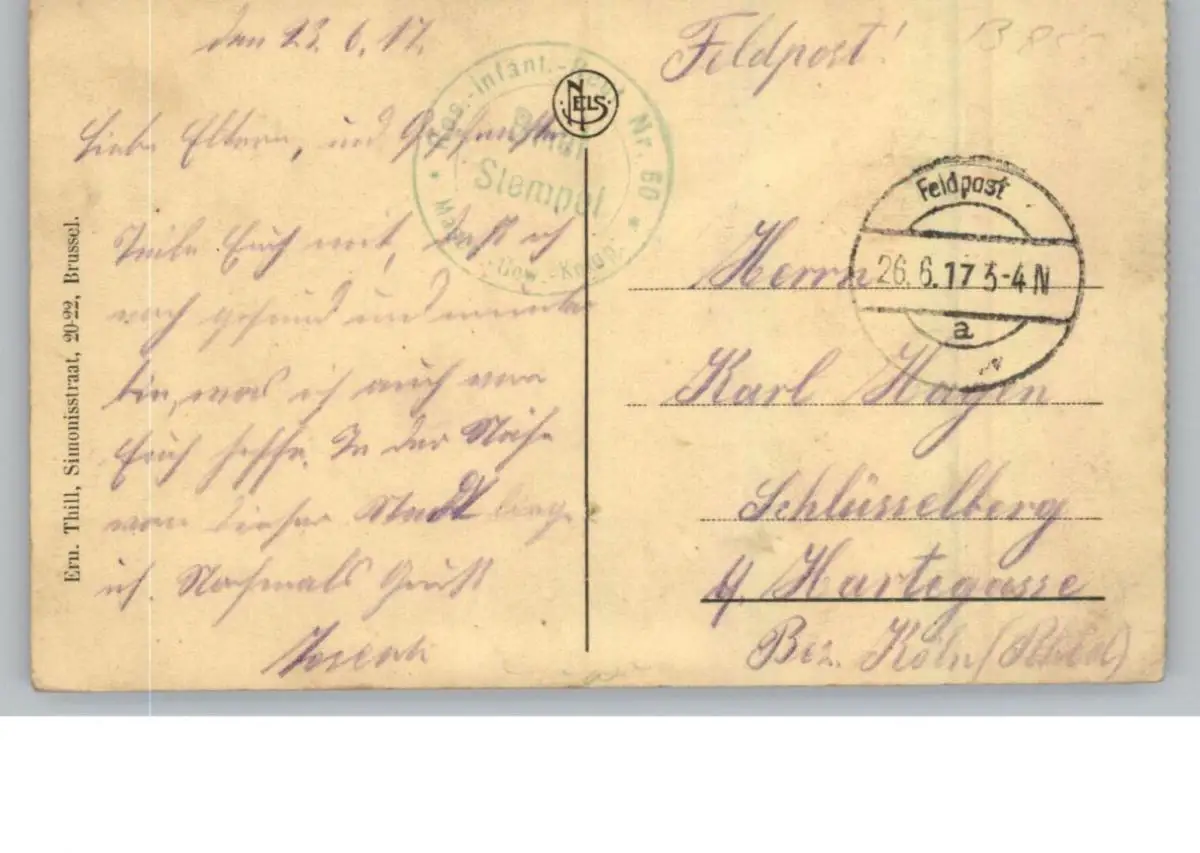 den 23.6.17.
Liebe Eltern, und Geschwister
Teile Euch mit, daß ich
noch gesund und munter
bin, was ich auch von
Euch hoffe. In der Nähe
von dieser Stadt liege
ich. Nochmals Gruß
Joseph
Ern. Thill, Simonisstraat, 20-22, Brussel.
NELS
Res.-Infant.-Regt. Nr. 60
Stempel
Feldpost!
Feldpost
26.6.17 3-4N
a
Herrn
Karl Hagen
Schlüsselberg
Hartegasse
Bez. Köln (Rhein)